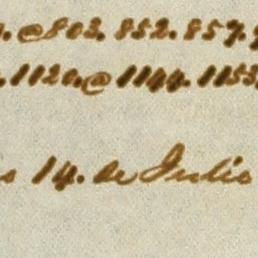 . @ 803. 852. 857.
. 1120. @ 1144. 1153
s 14. de Julio